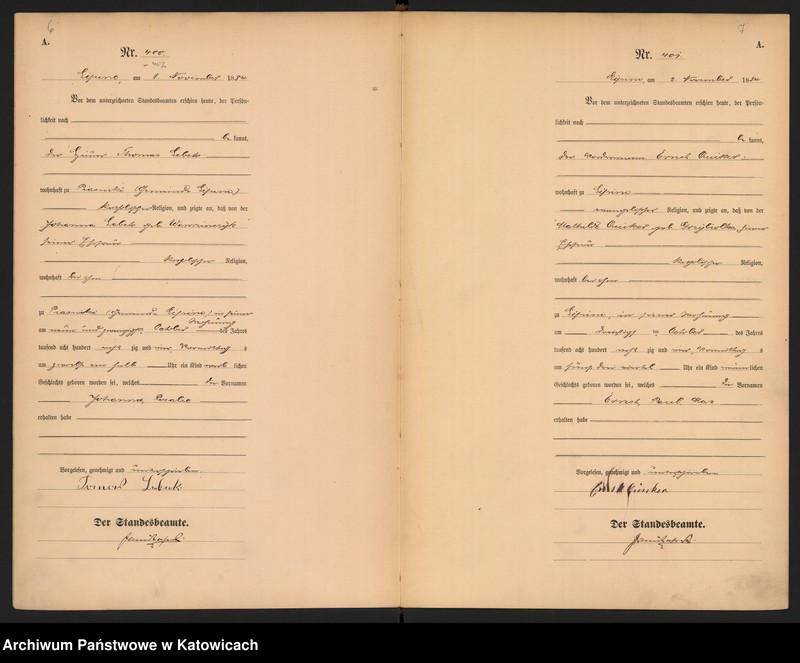 6
A.
Nr. 400.
Lipine, am 1. November 1884
Vor dem unterzeichneten Standesbeamten erschien heute, der Persön-
lichkeit nach
be kannt,
der Häuer Thomas Lebek
wohnhaft zu Piasniki (Gemeinde Lipine)
katholischer Religion, und zeigte an, daß von der
Johanna Lebek geb.
seiner Ehefrau
katholischer Religion,
wohnhaft bei ihm
zu Piasniki (Gemeinde Lipine) in seiner
Wohnung
am neun und zwanzigsten October des Jahres
tausend acht hundert acht zig und vier, Vormittag s
um zwölf ein halb Uhr ein Kind weib lichen
Geschlechts geboren worden sei, welches die Vornamen
Johanna, Rosalie
erhalten habe
Vorgelesen, genehmigt und unterschrieben
Tomas Lebek
Der Standesbeamte.
7
A.
Nr. 401.
Lipine, am 2. November 1884
Vor dem unterzeichneten Standesbeamten erschien heute, der Persön-
lichkeit nach
be kannt,
der Ernst
wohnhaft zu Lipine
evangelischer Religion, und zeigte an, daß von der
Mathilde geb. seiner
Ehefrau
katholischer Religion,
wohnhaft bei ihm
zu Lipine, in seiner Wohnung
am dreißigsten October des Jahres
tausend acht hundert acht zig und vier, Vormittag s
um fünf drei viertel Uhr ein Kind männ lichen
Geschlechts geboren worden sei, welches die Vornamen
Ernst, Paul, Max
erhalten habe
Vorgelesen, genehmigt und unterschrieben
Ernst
Der Standesbeamte.
Archiwum Państwowe w Katowicach